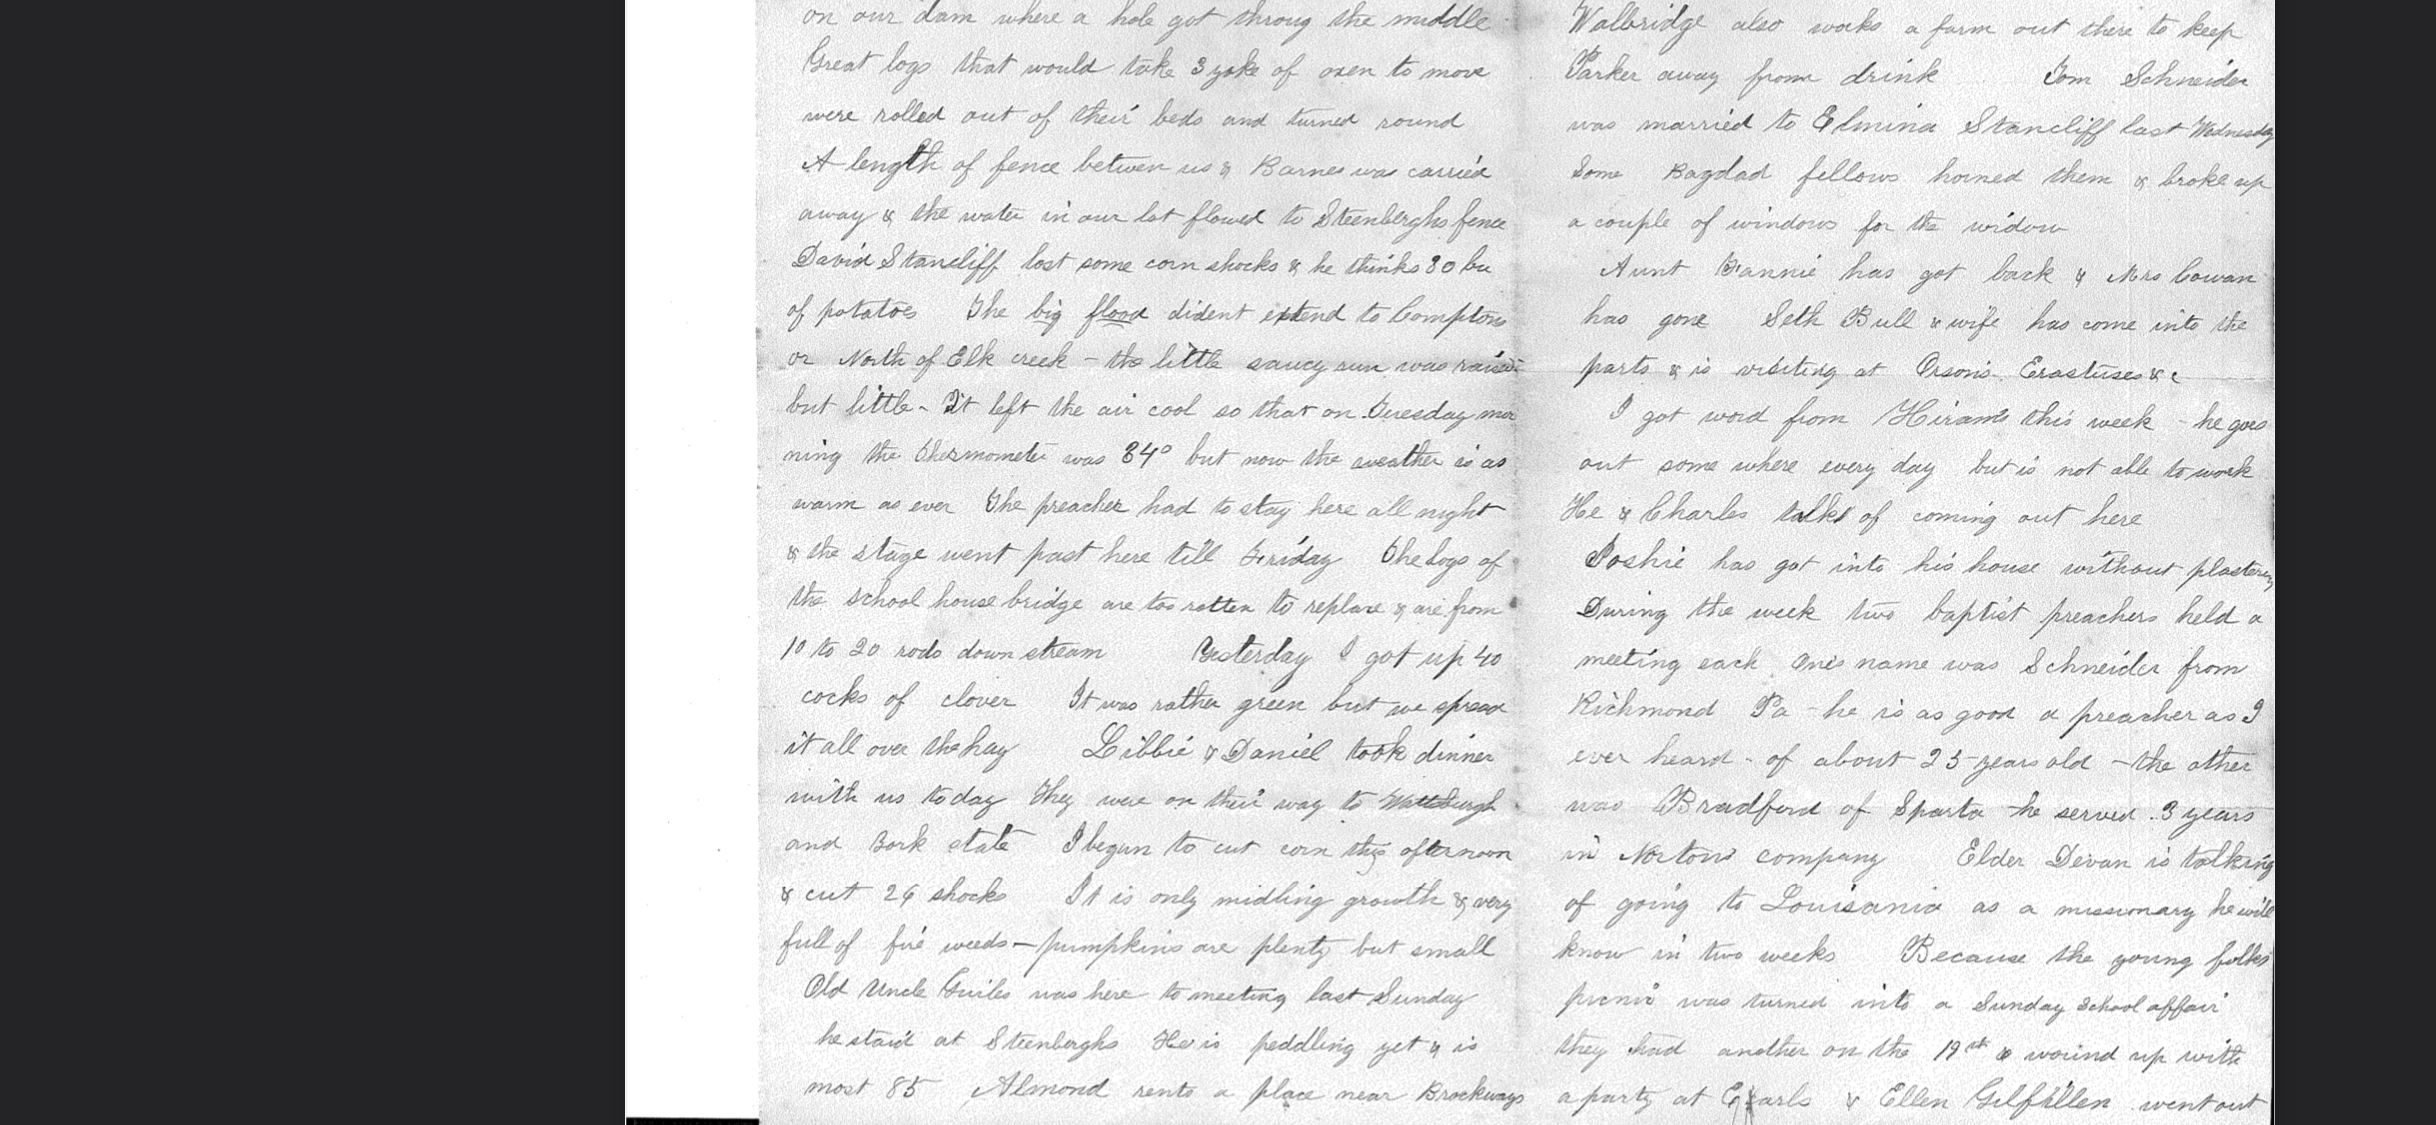 on our dam where a hole got throug the middle
Great logs that would take 3 yoke of oxen to move
were rolled out of their beds and turned round
A length of fence betwen us & Barnes was carried
away & the water in our lot flowed to Steenberghs fence
David Stancliff lost some corn shocks & he thinks 30 bu
of potatoes The big flood dident extend to Comptons
or North of Elk creek - the little saucy run was raised
but little - It left the air cool so that on Tuesday mor
ning the thermometer was 34° but now the weather is as
warm as ever The preacher had to stay here all night
& the stage went past here till Friday The logs of
the school house bridge are too rotten to replace & are from
10 to 20 rods down stream Yesterday I got up 40
cocks of clover It was rather green but we spread
it all over the hay Libbie & Daniel took dinner
with us today They were on their way to Wattsburgh
and York state I begun to cut corn this afternoon
& cut 26 shocks It is only midling growth & very
full of fire weeds - pumpkins are plenty but small
Old Uncle Guiles was here to meeting last Sunday
he staid at Steenberghs He is peddling yet & is
most 85 Almond rents a place near Brockways
Walbridge also works a farm out there to keep
Parker away from drink Tom Schneider
was married to Elmina Stancliff last Wednesday
Some Bagdad fellows horned them & broke up
a couple of windows for the widow
Aunt Fannie has got back & Mrs Cowan
has gone Seth Bull & wife has come into the
parts & is visiting at Orsons Erastuses &c
I got word from Hirams this week - he goes
out some where every day but is not able to work
He & Charles talks of coming out here
Poshie has got into his house without plastering
During the week two baptist preachers held a
meeting each ones name was Schneider from
Richmond Pa - he is as good a preacher as I
ever heard - of about 25 years old - the other
was Bradford of Sparta - he served 3 years
in Nortons company Elder Devan is talking
of going to Louisania as a missionary he will
know in two weeks Because the young folks
picnic was turned into a Sunday School affair
they had another on the 19st & wound up with
a party at Earls & Ellen Gilfillen went out